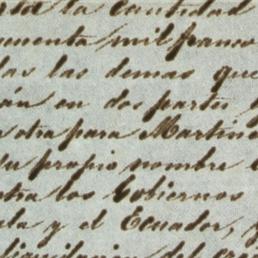 la cantidad
cuenta mil franco
las las demas que
án en dos partes
otra para Martin
su propio nombre
otra los Gobiernos
la y el Ecuador, y
liquidacion del cré